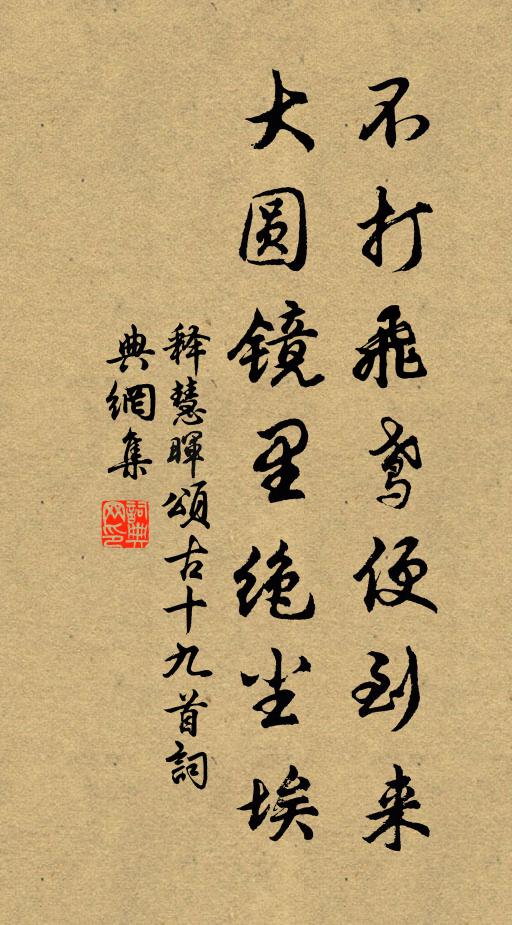 不打飛鸢便到来
大圆镜里绝尘埃
释慧暉頌古十九首詞
典網集
詞典
网印